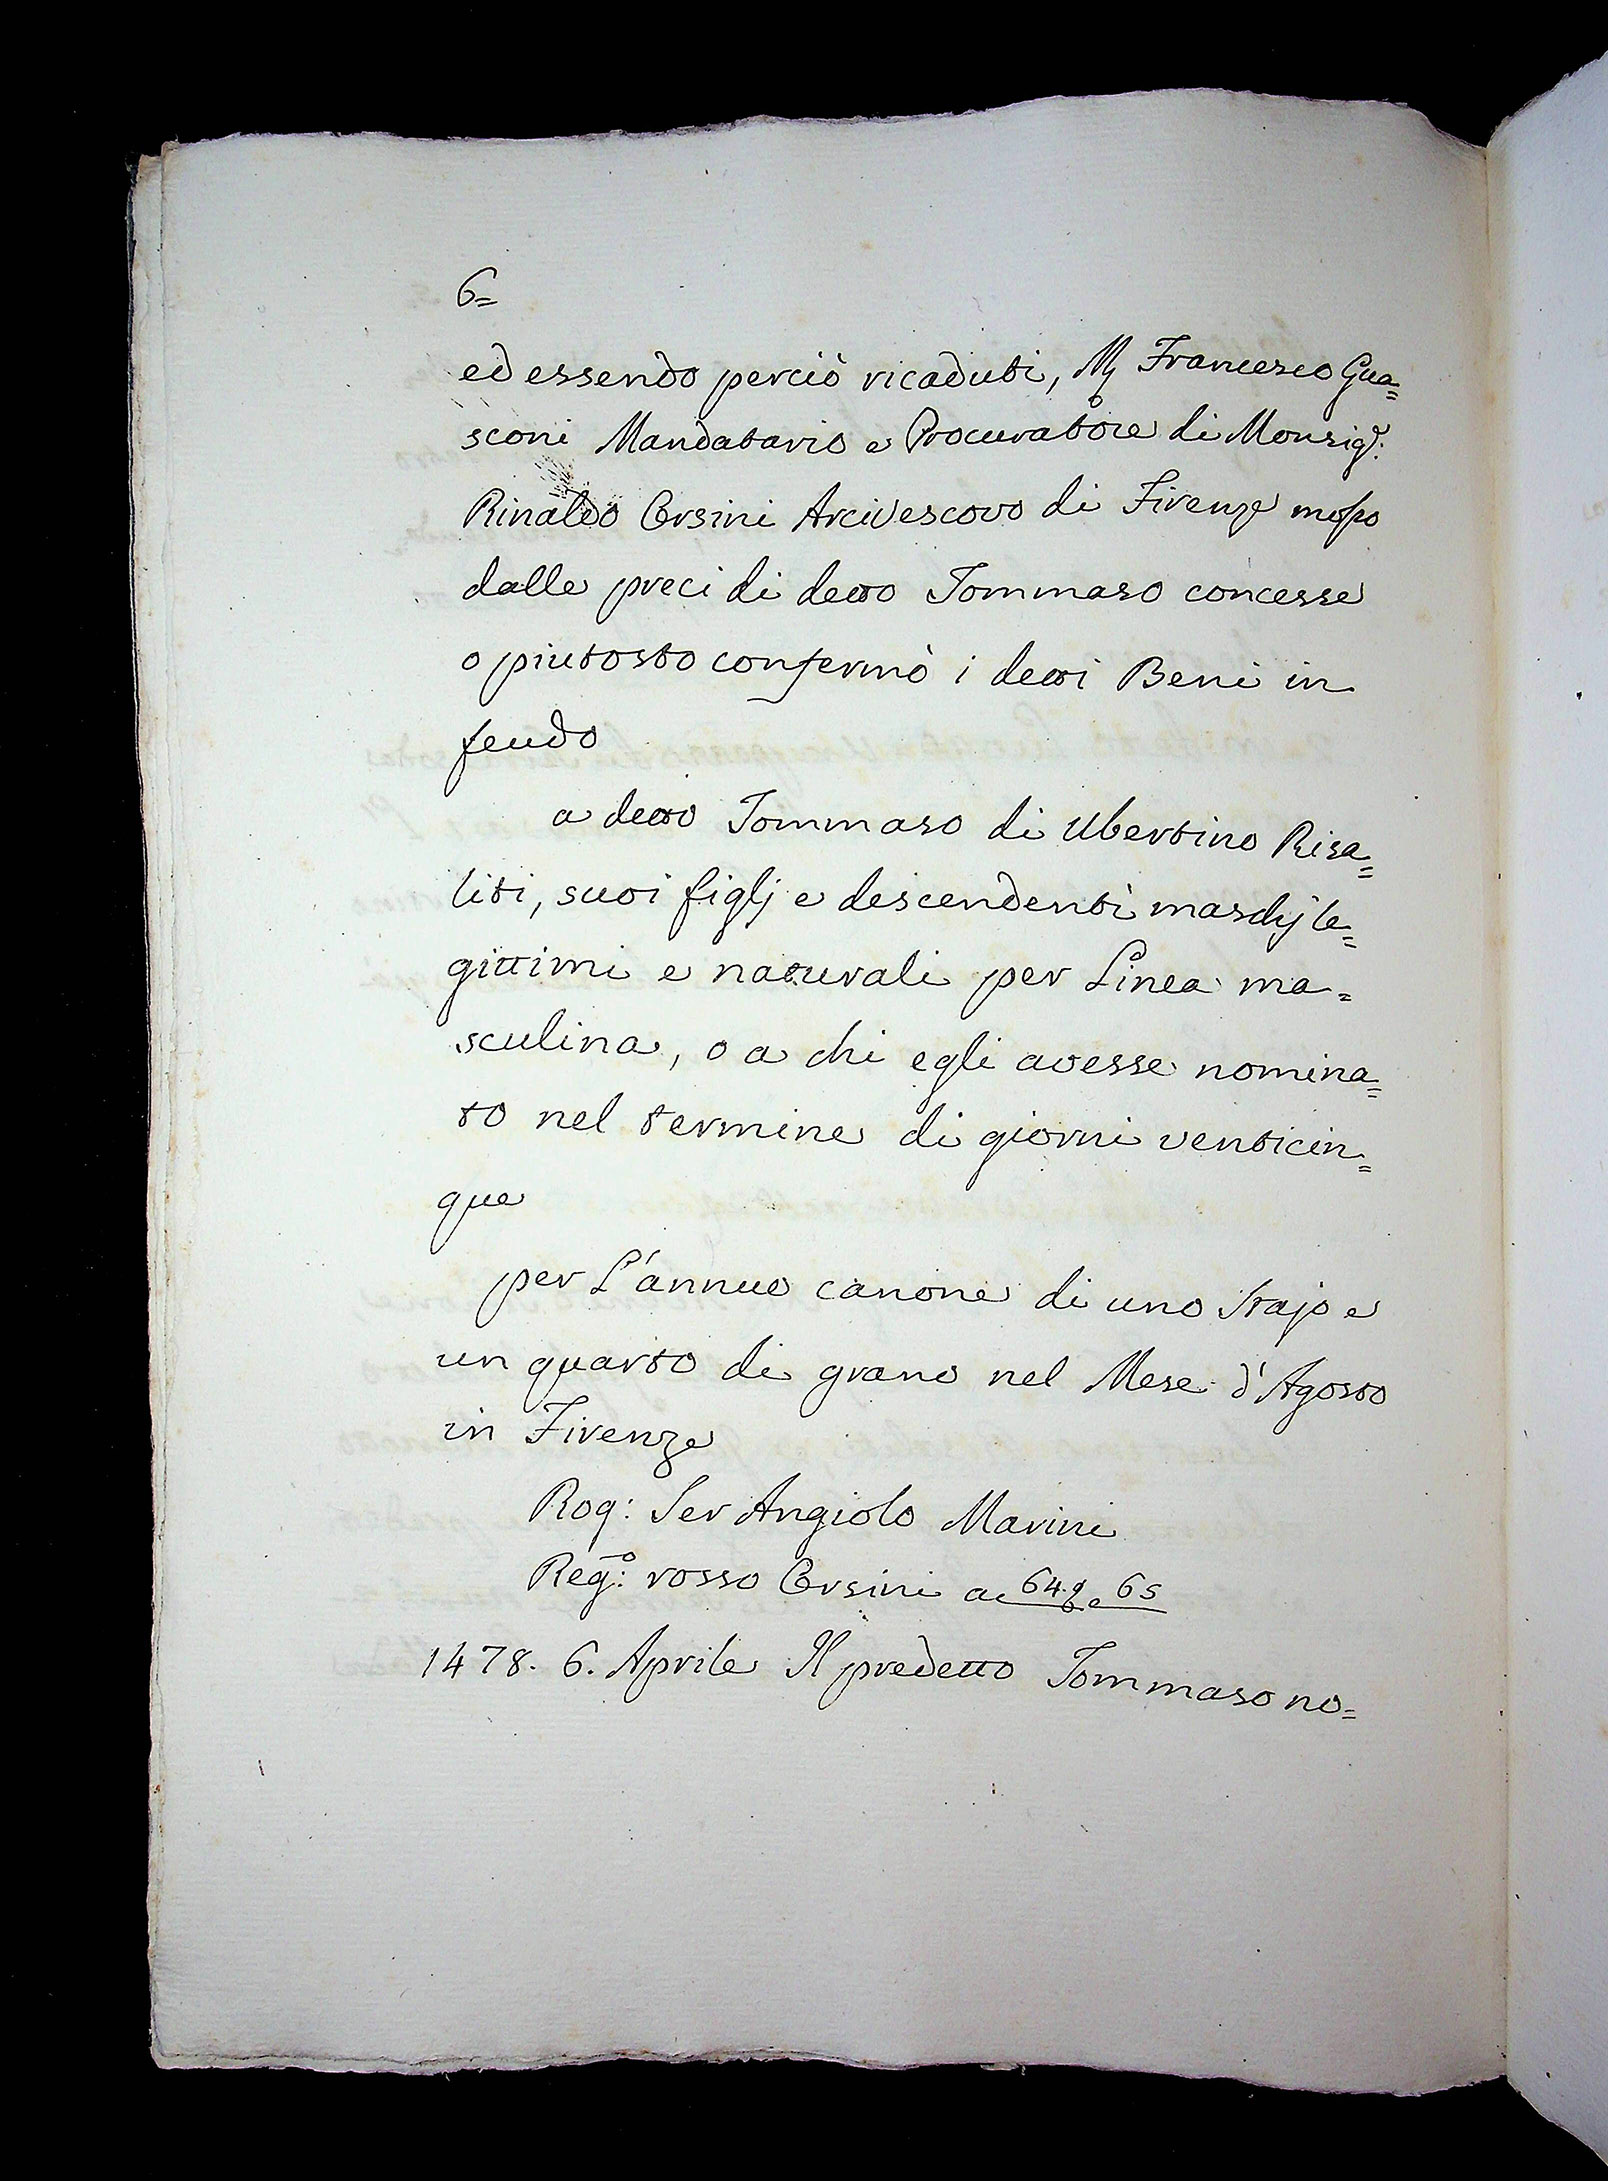 6=
ed essendo perciò ricaduti, M Francesco Gua=
sconi Mandatario e Procuratore di Monsig.r:
Rinaldo Orsini Arcivescovo di Firenze mosso
dalle preci di detto Tommaso concesse
o piutosto confermò i detti Beni in
feudo
a detto Tommaso di Ubertino Risa=
liti, suoi figlj e descendenti maschj le=
gittimi e naturali per Linea ma=
sculina, o a chi egli avesse nomina=
to nel termine di giorni venticin=
que
per L'annuo canone di uno Stajo e
un quarto di grano nel Mese d'Agosto
in Firenze
Rog: Ser Angiolo Marini
Reg.o: rosso Orsini a 64. e 65
1478. 6. Aprile Il predetto Tommaso no=